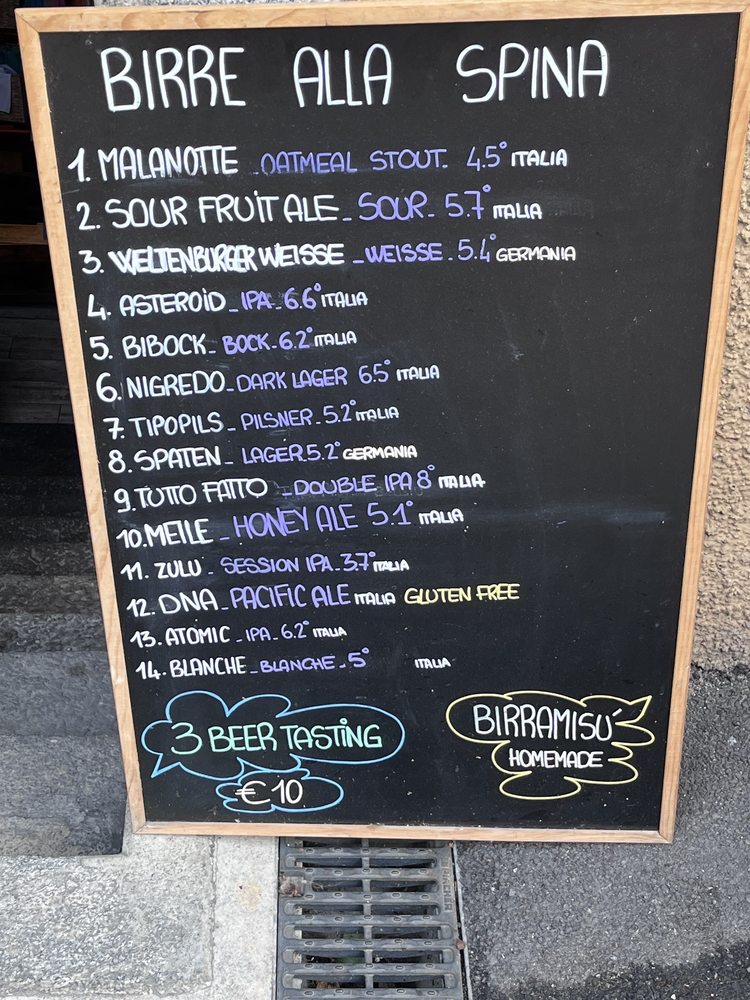 BIRRE ALLA SPINA
1. MALANOTTE - OATMEAL STOUT. 4.5° ITALIA
2. SOUR FRUIT ALE - SOUR - 5.7° ITALIA
3. WELTENBURGER WEISSE - WEISSE - 5.4° GERMANIA
4. ASTEROiD - IPA - 6.6° ITALIA
5. BIBOCK - BOCK - 6.2° ITALIA
6. NIGREDO - DARK LAGER 6.5° ITALIA
7. TIPOPILS - PILSNER - 5.2° ITALIA
8. SPATEN - LAGER 5.2° GERMANIA
9. TUTTO FATTO - DOUBLE IPA 8° ITALIA
10. MEILE - HONEY ALE 5.1° ITALIA
11. ZULU - SESSION IPA - 3.7° ITALIA
12. DNA - PACIFIC ALE ITALIA GLUTEN FREE
13. ATOMIC - IPA - 6.2° ITALIA
14. BLANCHE - BLANCHE - 5° ITALIA
3 BEER TASTING
€ 10
BIRRAMISU'
HOMEMADE